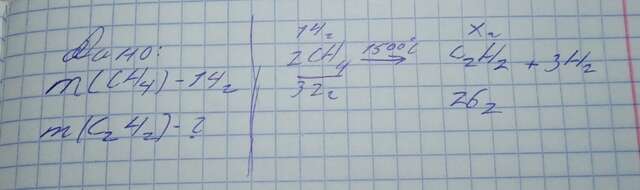 Дано:
m(CH4) - 14г
m(C2H2) - ?
14г xг
2CH4 1500°C → C2H2 + 3H2
32г 26г